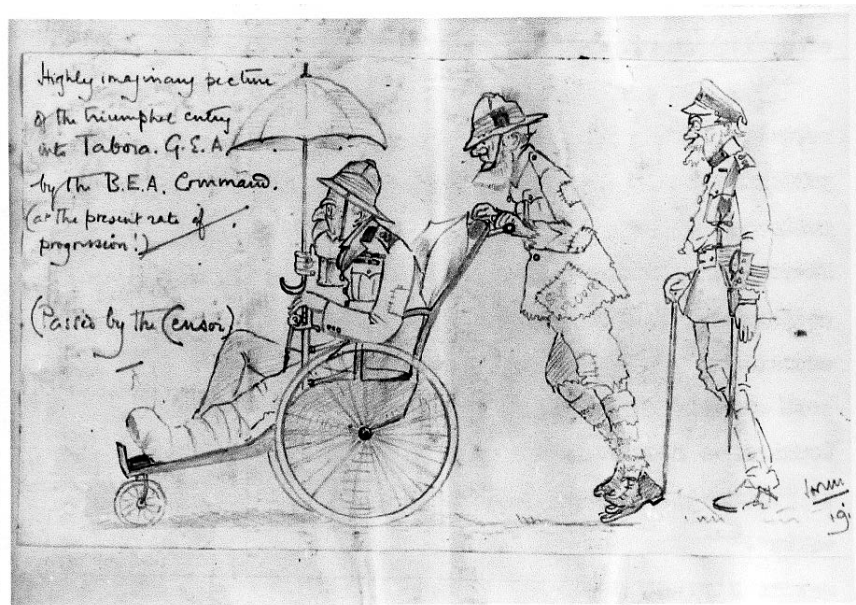 Highly imaginary picture
of the triumphal entry
into Tabora. G.E.A.
by the B.E.A. Command.
(at the present rate of
progression!)
(Passed by the Censor)